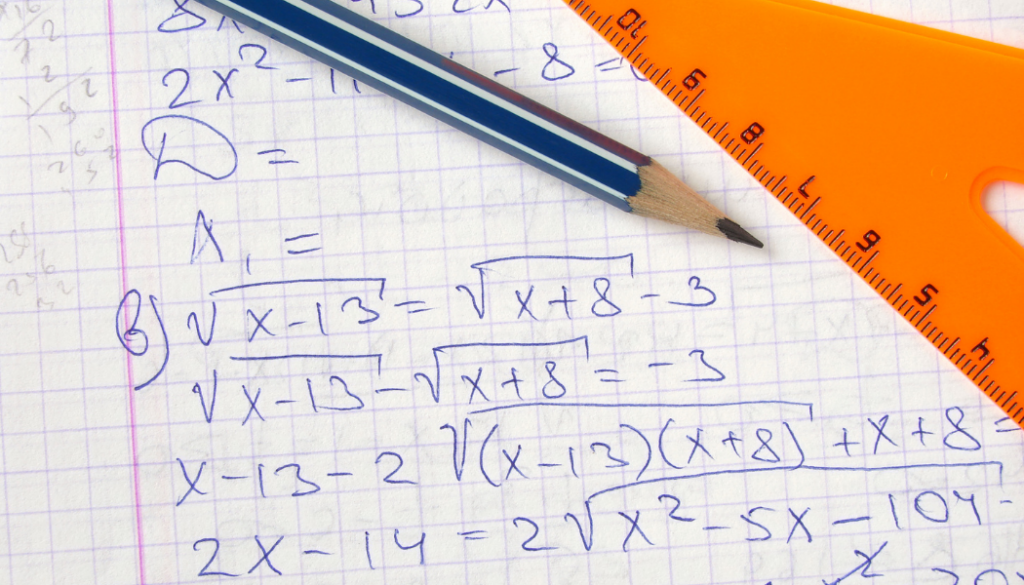 2x² - 11 - 8 =
D =
x₁ =
в) √(x-13) = √(x+8) - 3
√(x-13) - √(x+8) = -3
x-13-2 √((x-13)(x+8)) + x + 8 =
2x - 14 = 2√(x² - 5x - 104)
10
9
8
7
6
5
4